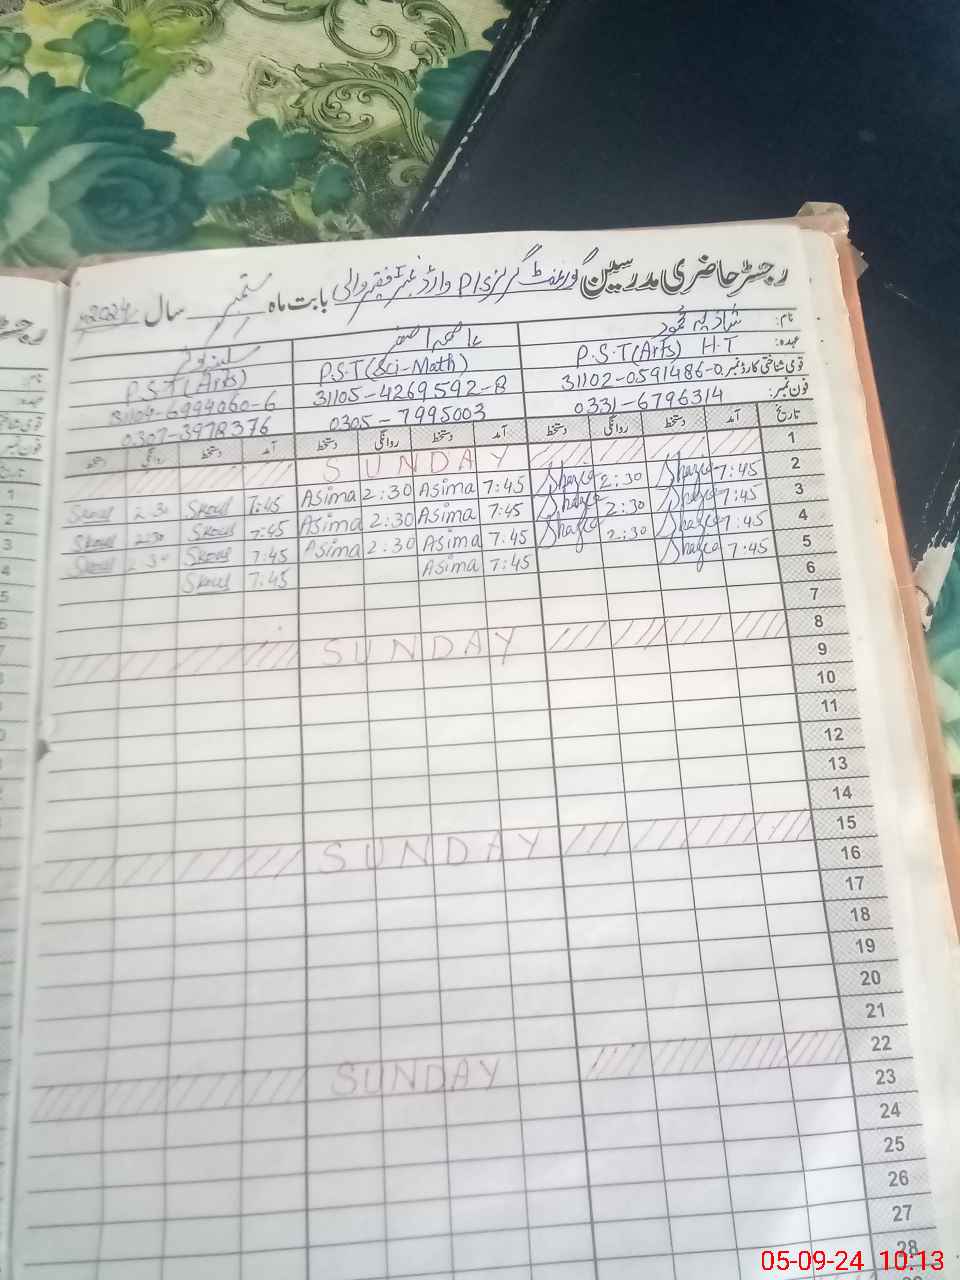 رجسٹر حاضری مدرسین گورنمنٹ گرلز P/S وارڈ نمبر 1 فقیر والی بابت ماہ ستمبر سال 2024ء
نام: شازیہ محمود عاصمہ اصغر
عہدہ: P.S.T(Arts) H.T P.S.T(Sci-Math) P.S.T(Arts)
قومی شناختی کارڈ نمبر 31102-0591486-0 31105-4269592-8 31104-6994060-6
فون نمبر: 0331-6796314 0305-7995003 0307-3978376
تاریخ آمد دستخط روانگی دستخط آمد دستخط روانگی دستخط آمد دستخط روانگی دستخط
1 SUNDAY
2 7:45 Shazia 2:30 Shazia 7:45 Asima 2:30 Asima 7:45 2:30
3 7:45 Shazia 2:30 Shazia 7:45 Asima 2:30 Asima 7:45 2:30
4 7:45 Shazia 2:30 Shazia 7:45 Asima 2:30 Asima 7:45
5 7:45 Shazia 7:45 Asima 7:45
6
7
8 SUNDAY
9
10
11
12
13
14
15 SUNDAY
16
17
18
19
20
21
22 SUNDAY
23
24
25
26
27
28
05-09-24 10:13